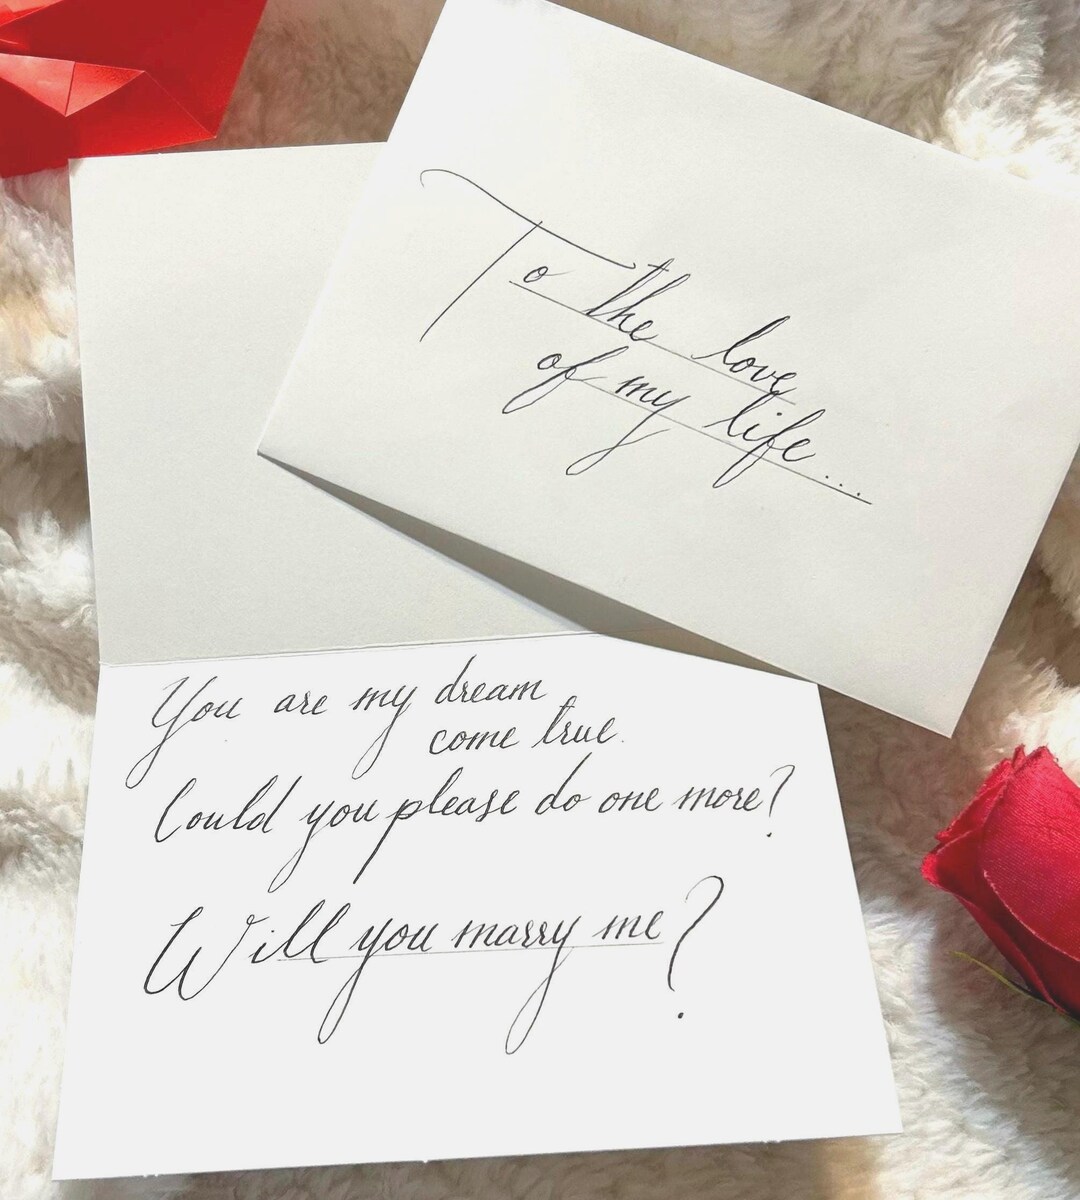 To the love
of my life...
You are my dream
come true.
Could you please do one more?
Will you marry me?